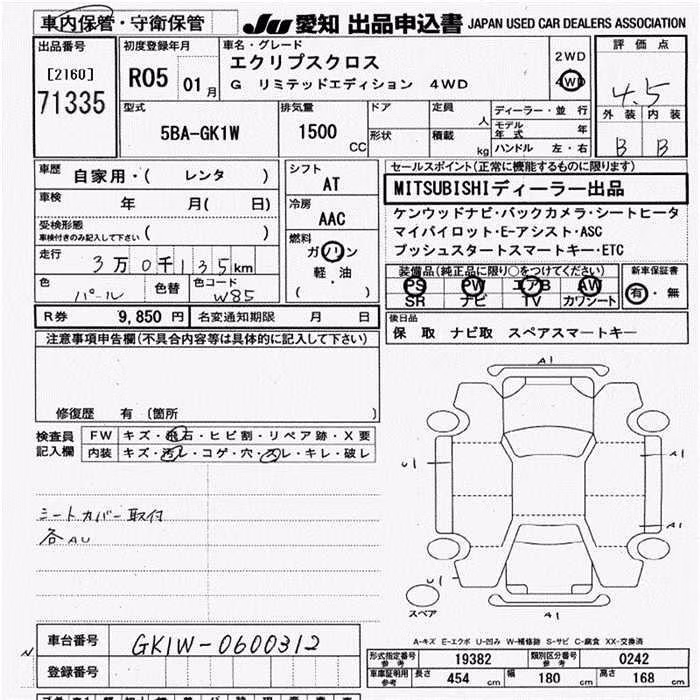 車内保管・守衛保管 JU 愛知 出品申込書 JAPAN USED CAR DEALERS ASSOCIATION
出品番号 初度登録年月 車名・グレード 評価点
[2160] R05 01月 エクリプスクロス 2WD
71335 G リミテッドエディション 4WD 4WD 4.5
型式 排気量 ドア 定員 人 ディーラー・並行 外装 内装
5BA-GK1W 1500 CC 形状 積載 kg モデル年式 年 B B
ハンドル 左・右
車歴 自家用・( レンタ ) シフト AT セールスポイント(正常に機能するものに限ります)
車検 年 月( 日) 冷房 AAC MITSUBISHIディーラー出品
受検形態 ケンウッドナビ・バックカメラ・シートヒータ
車検付きのみ記入して下さい ( ) 燃料 マイパイロット・E-アシスト・ASC
走行 3万0千135km ガソリン プッシュスタートスマートキー・ETC
軽・油 装備品(純正品に限り○をつけてください) 新車保証書
色 パール 色替 色コード W85 ( ) PS PW エアB AW 有・無
SR ナビ TV カワシート
R券 9,850円 名変通知期限 月 日 後日品
注意事項申告欄(不具合内容等は具体的に記入して下さい) 保 取 ナビ取 スペアスマートキー
修復歴 有 〔箇所 〕
検査員 FW キズ・飛石・ヒビ割・リペア跡・X要
記入欄 内装 キズ・汚レ・コゲ・穴・スレ・キレ・破レ
シートカバー取付
各AU
A1
U1 A1
A1
U1
スペア A1
A-キズ E-エクボ U-凹み W-補修跡 S-サビ C-腐食 XX-交換済
N 車台番号 GK1W-0600312
登録番号
形式指定番号 参考 19382 類別区分番号 参考 0242
車庫証明用 参考 長さ 454 cm 幅 180 cm 高さ 168 cm